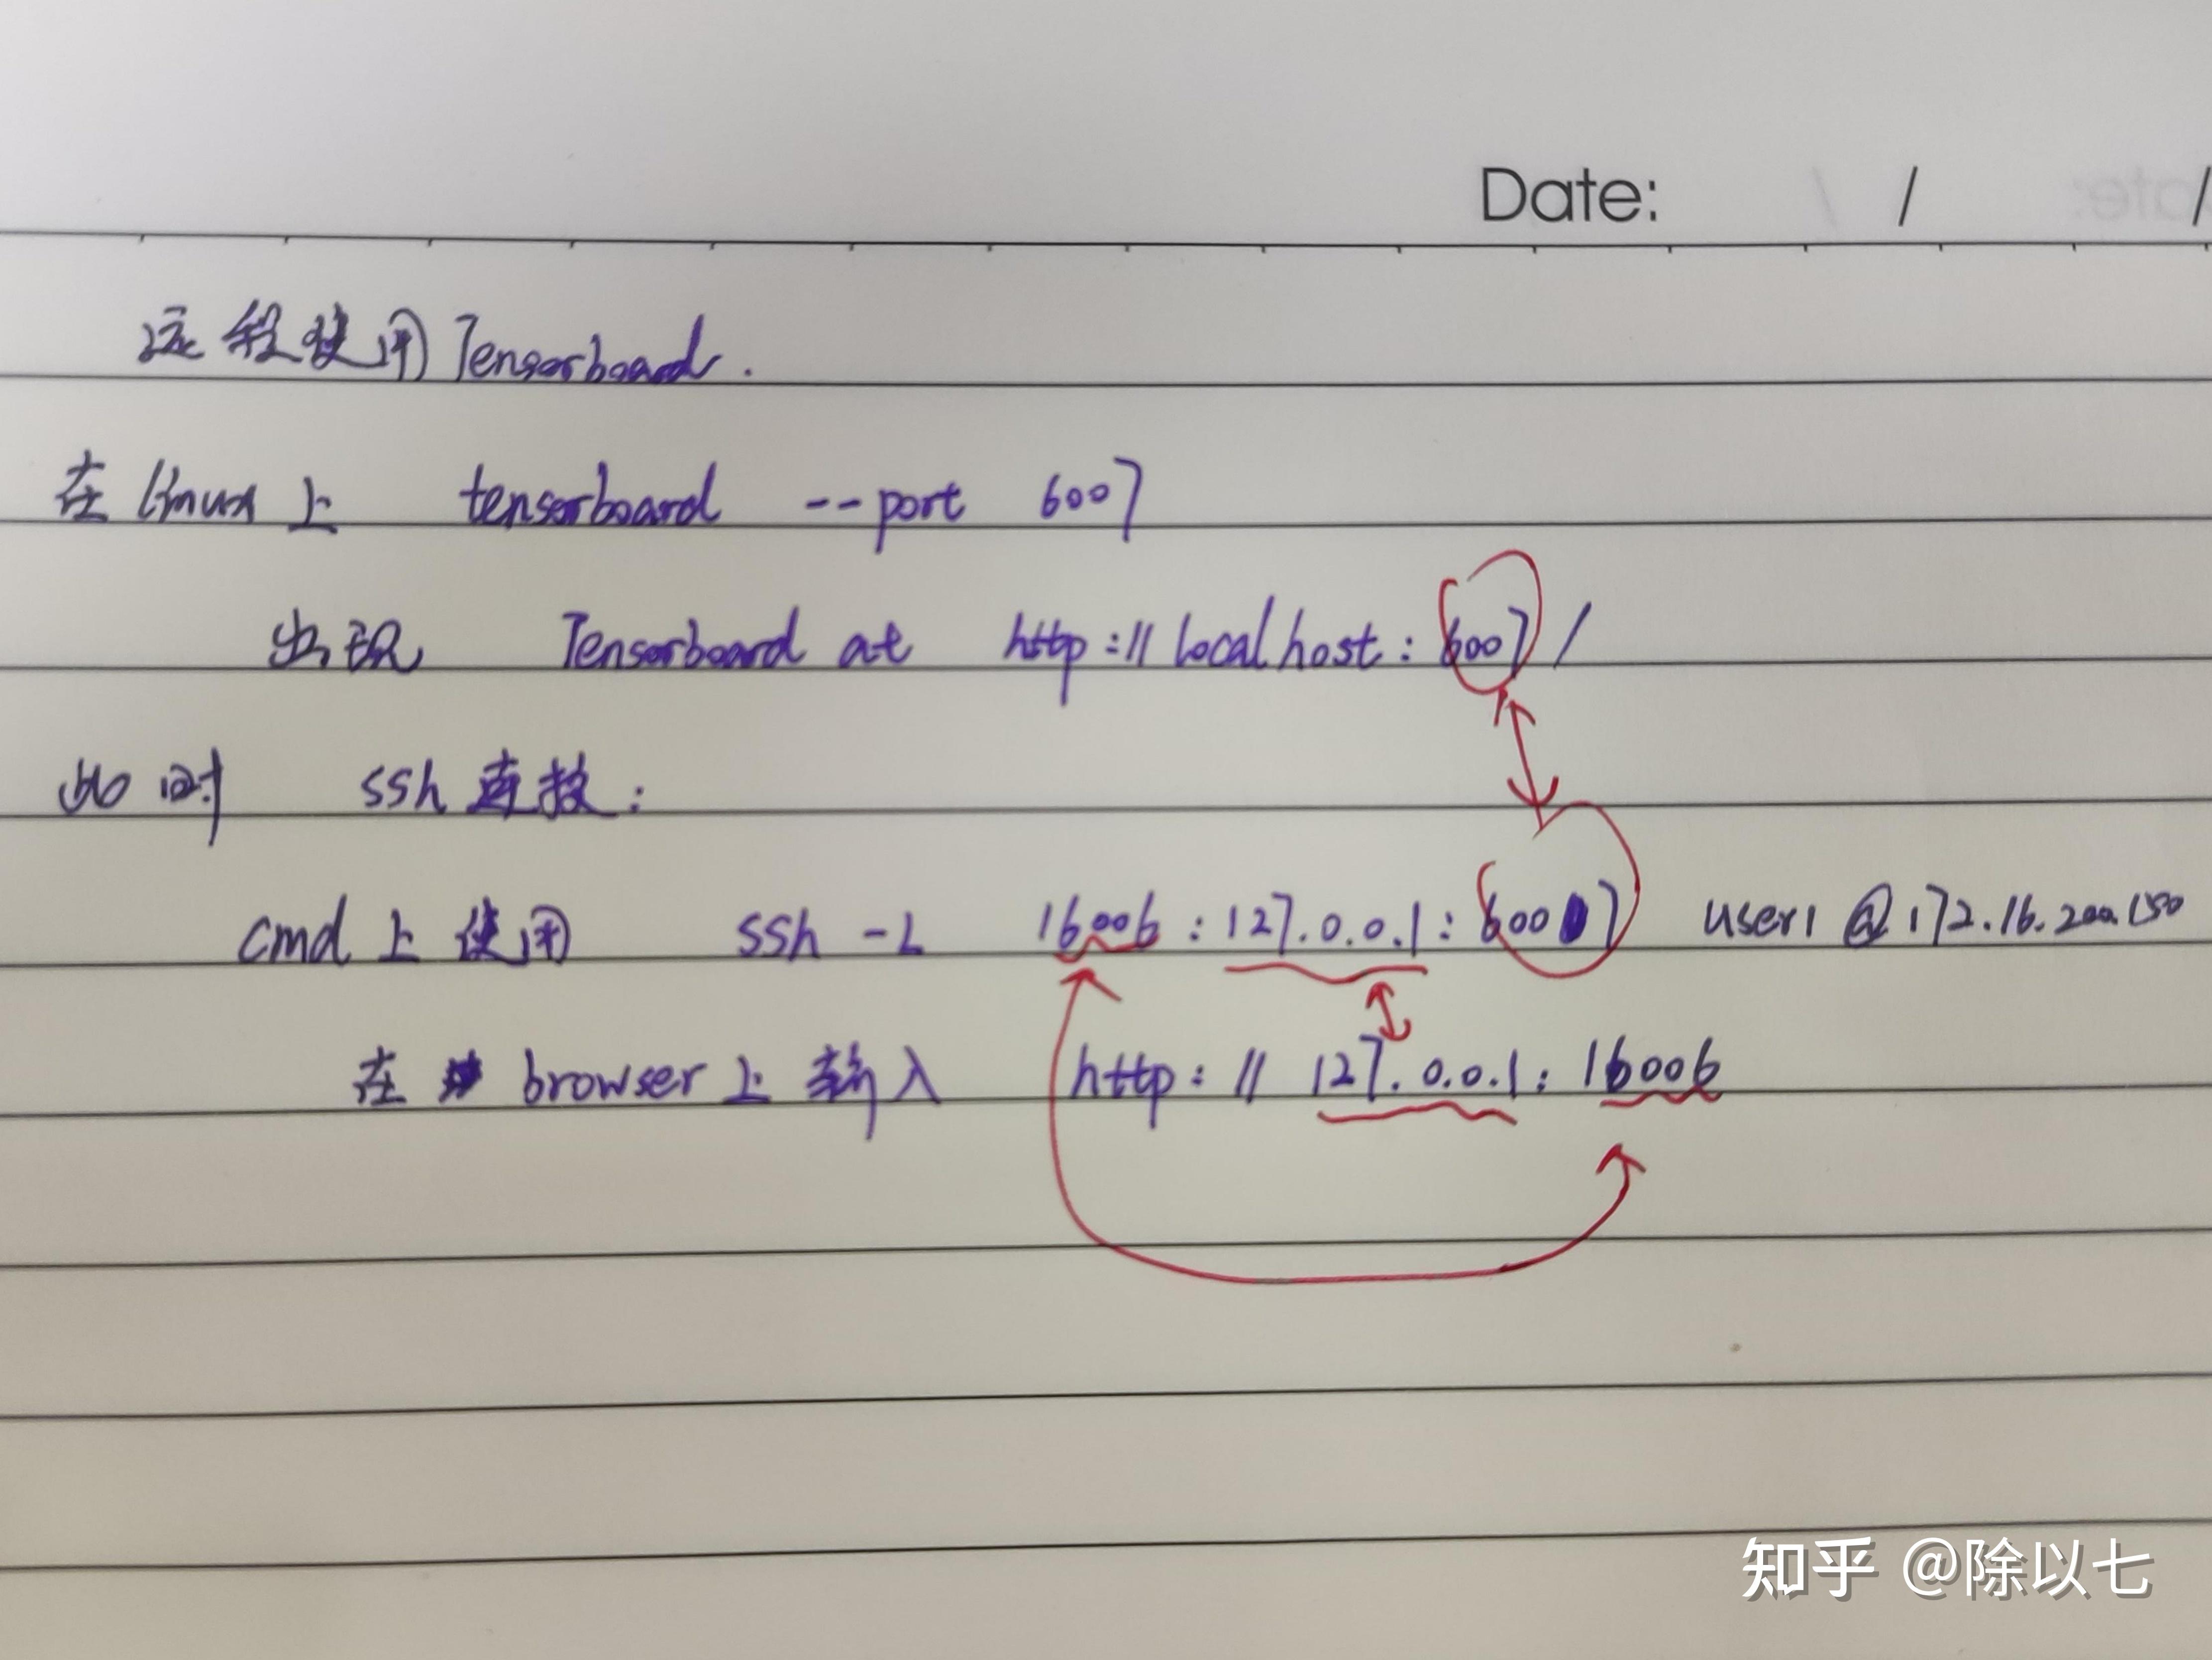 Date: / /
远程使用Tensorboard.
在linux上 tensorboard --port 6007
出现 Tensorboard at http://localhost:6007/
此时 ssh连接:
cmd上使用 ssh -L 16006:127.0.0.1:6007 user1@172.16.200.150
在 browser上输入 http://127.0.0.1:16006
知乎 @除以七